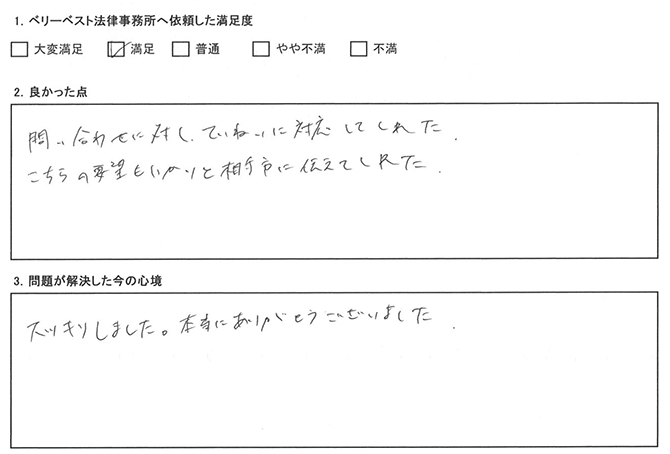 1. ベリーベスト法律事務所へ依頼した満足度
□ 大変満足 ☑ 満足 □ 普通 □ やや不満 □ 不満
2. 良かった点
問い合わせに対し、ていねいに対応してくれた.
こちらの要望もしっかりと相手方に伝えてくれた.
3. 問題が解決した今の心境
スッキリしました。本当にありがとうございました.